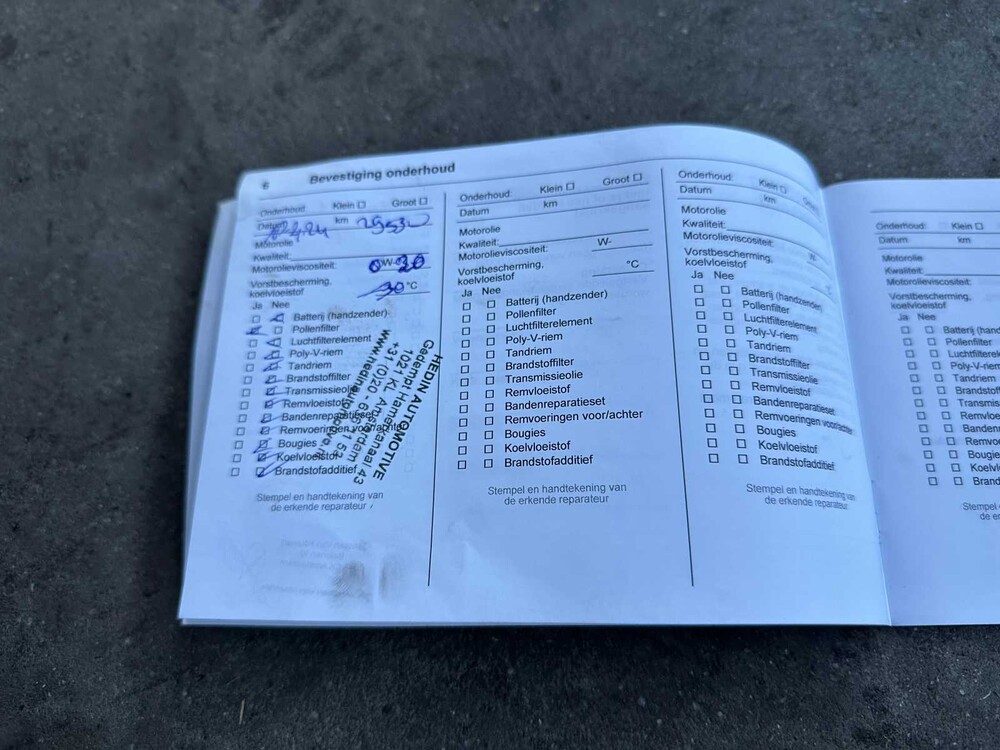 6 Bevestiging onderhoud
Onderhoud: Klein Groot
Datum km 29530
Motorolie
Kwaliteit:
Motorolieviscositeit: 0W-20
Vorstbescherming,
koelvloeistof -30 °C
Ja Nee
Batterij (handzender)
Pollenfilter
Luchtfilterelement
Poly-V-riem
Tandriem
Brandstoffilter
Transmissieolie
Remvloeistof
Bandenreparatieset
Remvoeringen voor/achter
Bougies
Koelvloeistof
Brandstofadditief
HEDIN AUTOMOTIVE
Gedempt Hamerkanaal 43
1021 KL Amsterdam
Stempel en handtekening van
de erkende reparateur
Onderhoud: Klein Groot
Datum km
Motorolie
Kwaliteit:
Motorolieviscositeit: W-
Vorstbescherming,
koelvloeistof °C
Ja Nee
Batterij (handzender)
Pollenfilter
Luchtfilterelement
Poly-V-riem
Tandriem
Brandstoffilter
Transmissieolie
Remvloeistof
Bandenreparatieset
Remvoeringen voor/achter
Bougies
Koelvloeistof
Brandstofadditief
Stempel en handtekening van
de erkende reparateur
Onderhoud: Klein Groot
Datum km
Motorolie
Kwaliteit:
Motorolieviscositeit: W-
Vorstbescherming,
koelvloeistof
Ja Nee
Batterij (handzender)
Pollenfilter
Luchtfilterelement
Poly-V-riem
Tandriem
Brandstoffilter
Transmissieolie
Remvloeistof
Bandenreparatieset
Remvoeringen voor/achter
Bougies
Koelvloeistof
Brandstofadditief
Stempel en handtekening van
de erkende reparateur
Onderhoud: Klein
Datum km
Motorolie
Kwaliteit:
Motorolieviscositeit:
Vorstbescherming,
koelvloeistof
Ja Nee
Batterij (hand
Pollenfilter
Luchtfilterele
Poly-V-riem
Tandriem
Brandstoff
Transmis
Remvloe
Banden
Remvo
Bougi
Koelvl
Brand
Stempel
de er